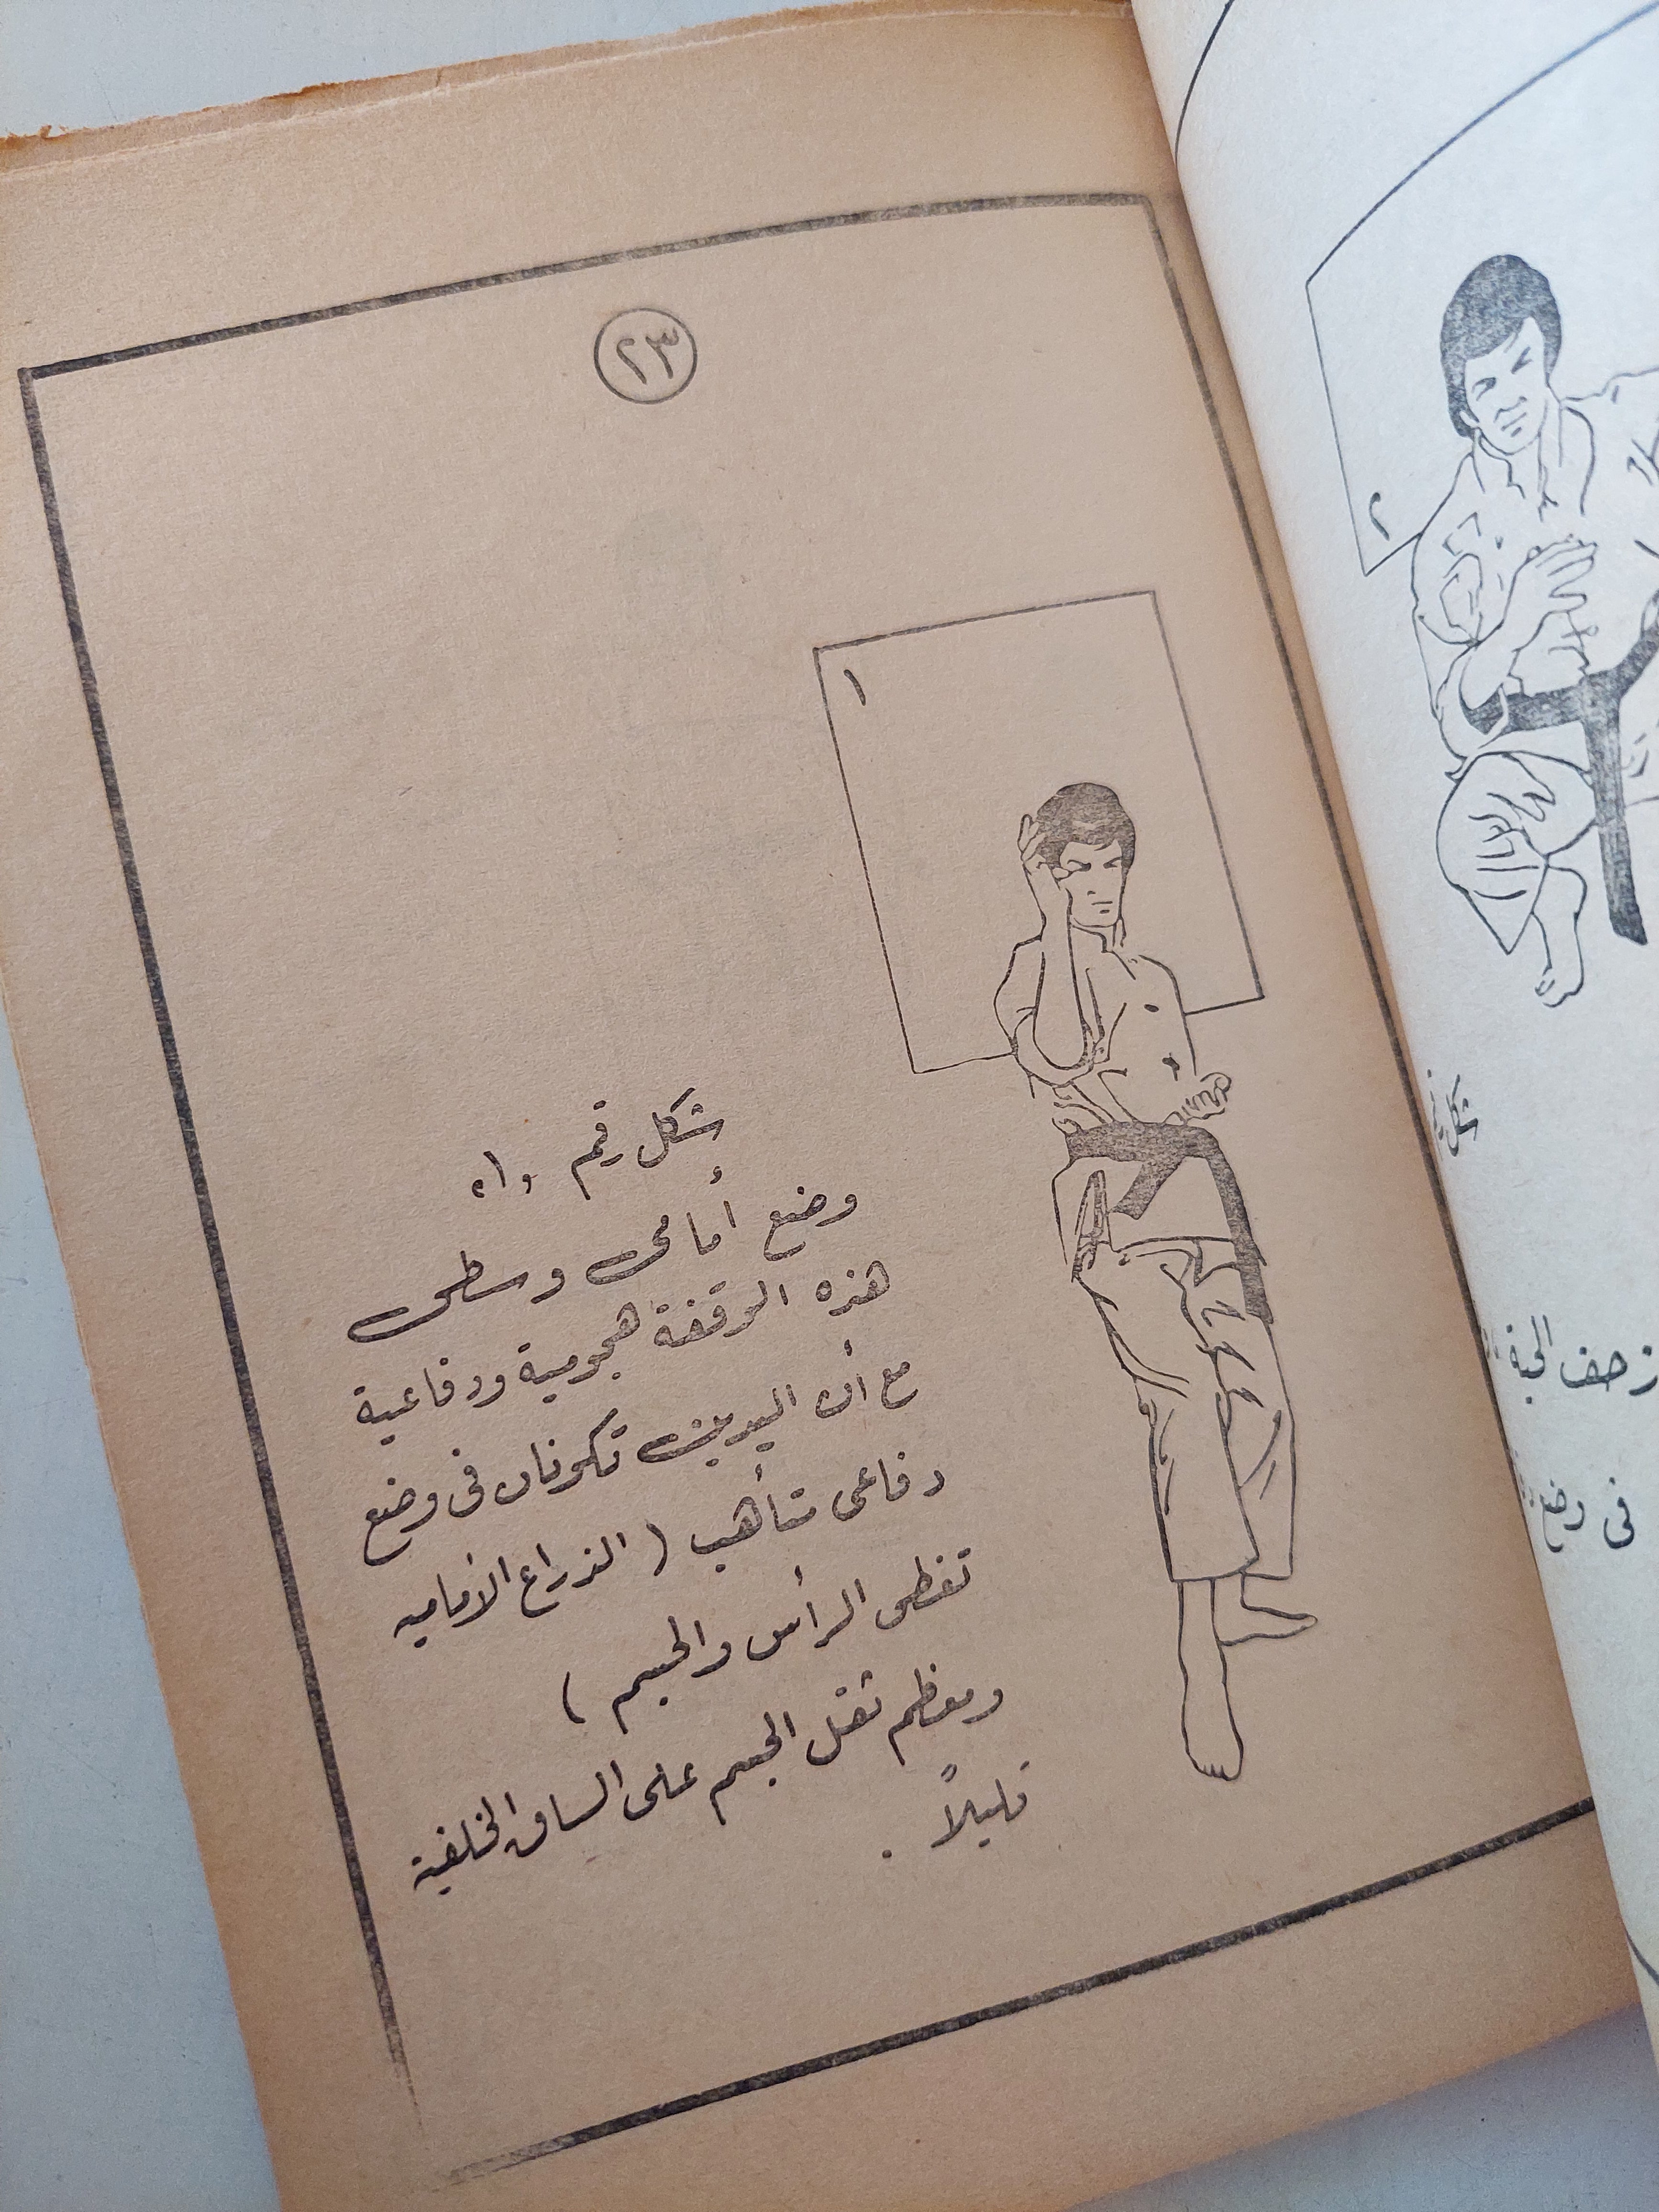 ٢٣
١
شكل رقم «١»
وضع أمامى وسطى
هذه الوقفة هجومية ودفاعية
مع أن اليدين تكونان فى وضع
دفاعى متأهب ( الذراع الأماميه
تغطى الرأس والجسم )
ومعظم ثقل الجسم على الساق الخلفية
قليلاً .
٢
شكل
زحف الحية
فى وضع